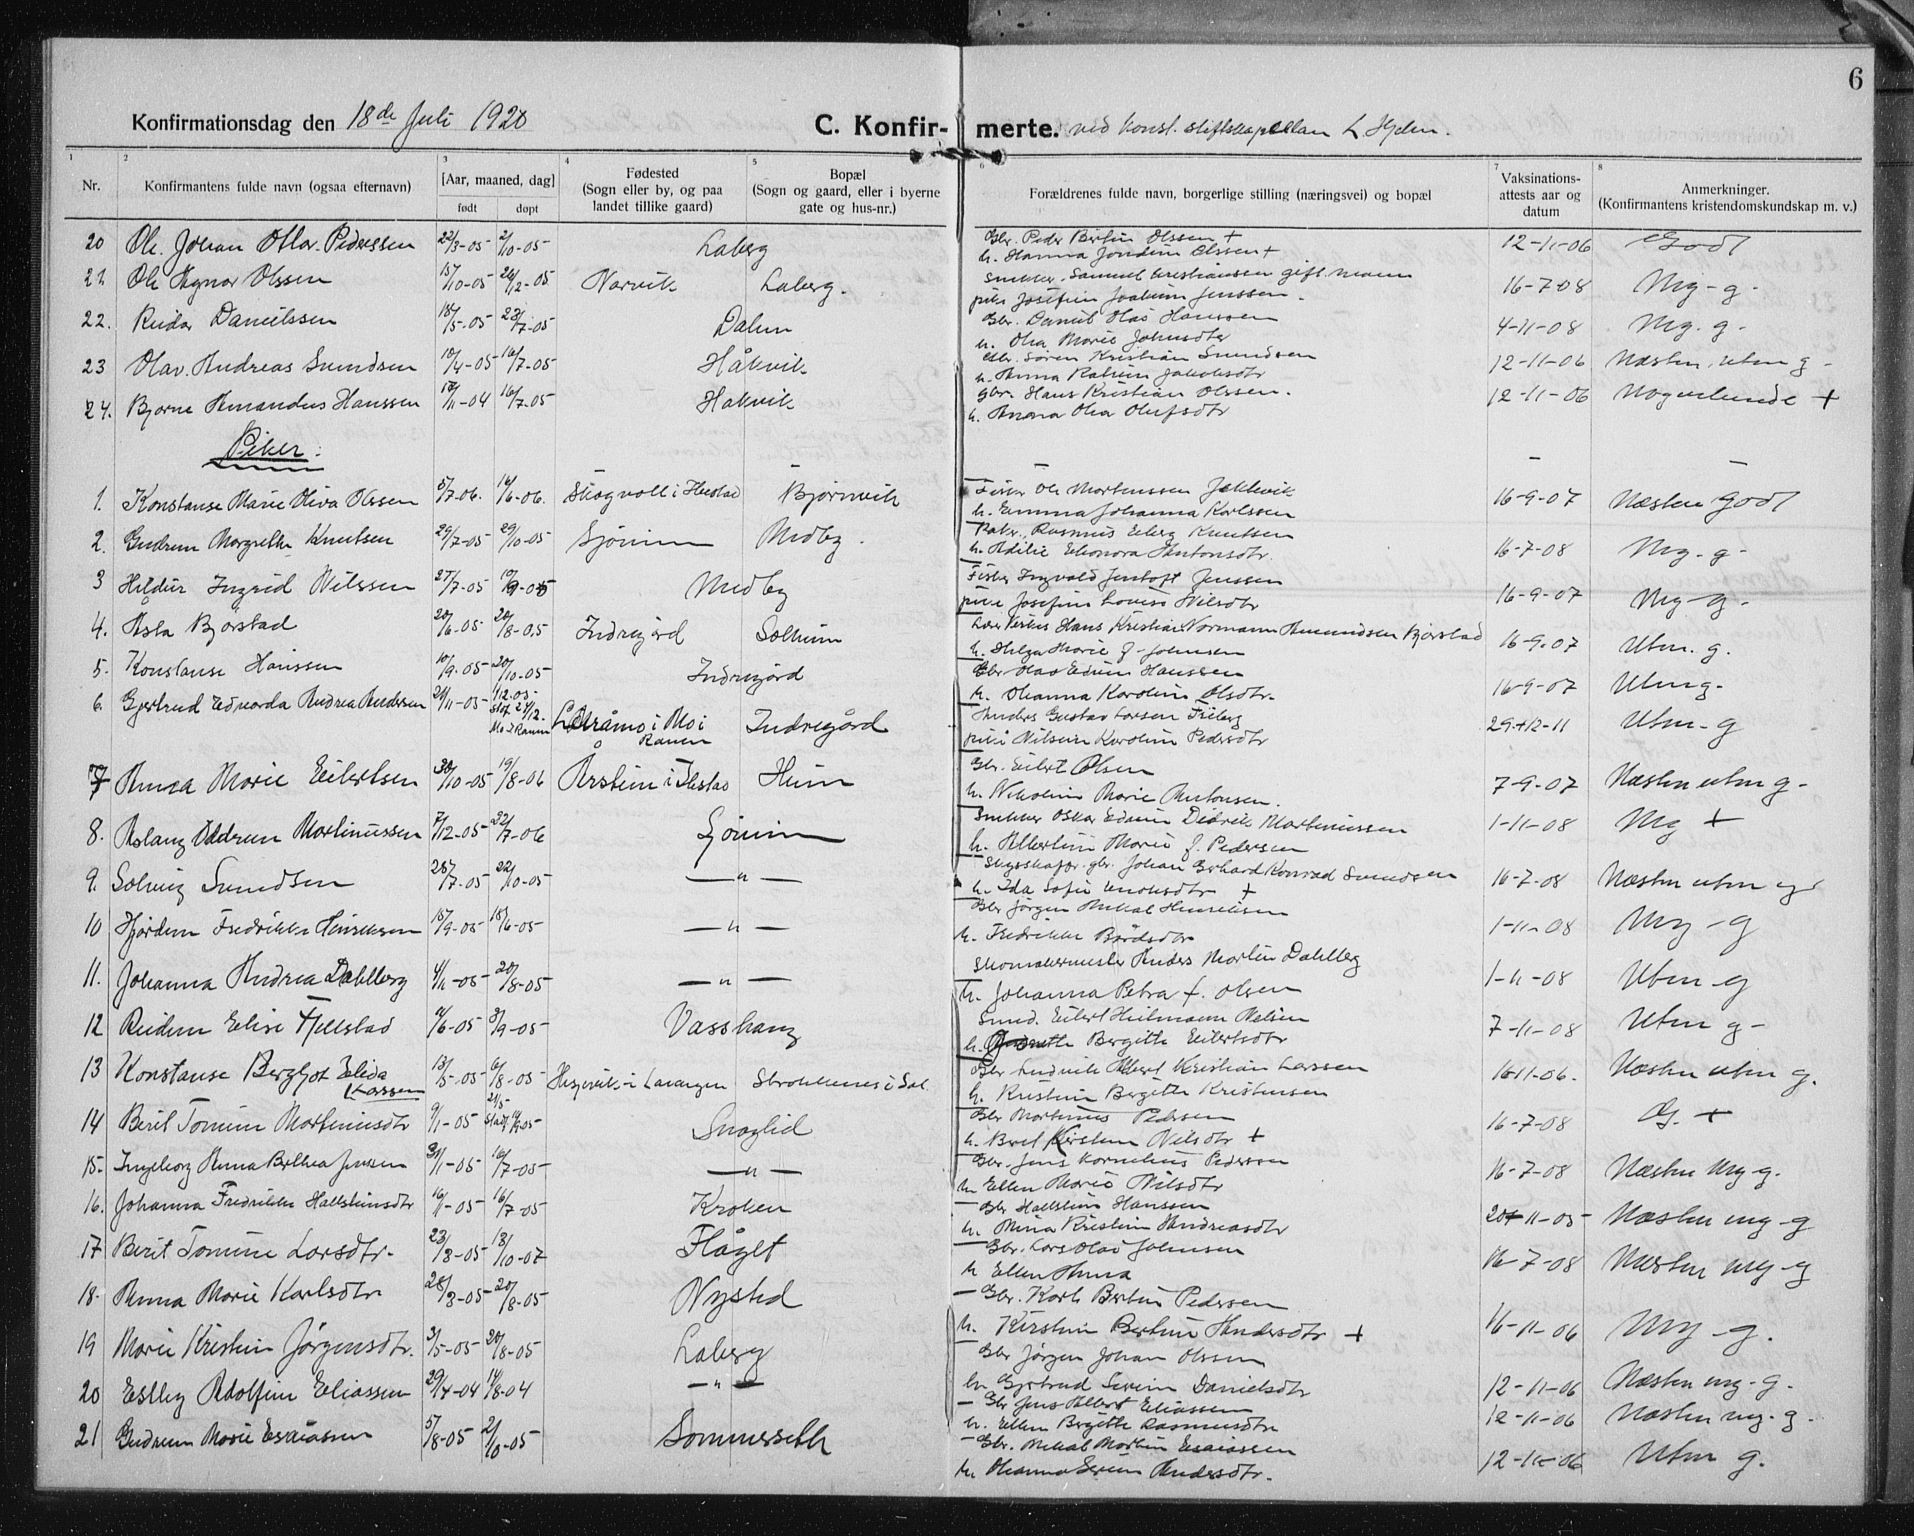 6
Konfirmationsdag den 18de Juli 1920 C. Konfirmerte. ved konst. stiftskapellan L Hjelm.
1 2 3 4 5 6 7 8
Nr. Konfirmantens fulde navn (ogsaa efternavn) [Aar, maaned, dag] født døpt Fødested (Sogn eller by, og paa landet tillike gaard) Bopæl (Sogn og gaard, eller i byerne gate og hus-nr.) Forældrenes fulde navn, borgerlige stilling (næringsvei) og bopæl Vaksinations-attests aar og datum Anmerkninger. (Konfirmantens kristendomskundskap m. v.)
20 Ole Johan Olav Pederssen 22/3-05 2/10-05 Laberg Gbr. Peder Bertin Olssen + 12-11-06 Godt
h. Hanna Jondine Olssen +
21. Ole Ragnar Olssen 15/10-05 26/12-05 Narvik Laberg. Snekker. Samuel Kristianssen gift mann 16-7-08 Mg-g-
pike Josefine Joakime Jenssen.
22. Reidar Danielssen 18/5-05 23/7-05 Dalen Gbr. Daniel Olai Hanssen 4-11-08 Mg. g-
h. Olea Marie Johnsdtr
23 Olav Andreas Svendsen 10/4-05 16/7-05 Håkvik Gbr. Søren Kristian Svendsen 12-11-06 Næsten utm g-
h. Anna Katrine Jakobsdtr
24. Bjarne Amandus Hanssen 17/11-04 16/7-05 Håkvik Gbr. Hans Kristian Olssen. 12-11-06 Nogenlunde +
h. Anna Olea Olufsdtr
Piker:
1. Konstanse Marie Oliva Olssen 5/7-06. 16/6-06. Skogvoll i Ibestad Bjørnvik Fisker Ole Mortenssen 16-9-07 Næsten godt
h. Emma Johanna Karlssen
2. Gudrun Margrethe Knutsen 29/7-05 29/10-05 Sjøveien Medby. Rasmus Eberg Knutsen 16-7-08 Mg-g-
h. Adilie Eleonora Antonsdtr.
3 Hildur Ingrid Nilssen 27/7-05 Medby Fisker Ingvald Jentoft Jenssen 16-9-07 Mg-g-
pike Josefine Lovise Nilsdtr
4. Åsta Bjørstad 20/6-05 20/8-05 Indregård Solheim Hans Kristian Normann Amundsen Bjørstad 16-9-07 Utm. g.
h. Helga Marie f. Johnsen
5. Konstanse Hanssen 10/9-05 20/10-05 Indregård Gbr Olav Edvin Hanssen 16-9-07 Utm g-
h. Johanna Karoline Olsdtr.
6. Gjertrud Edvarda Andrea Andersen 21/11-05 1/12-05 Stadf. 26/12 Mo i Ranen Mo i Ranen Indregård Anders Gustav Larsen Friberg 29-12-11 Utm-g
pike Nilsine Karoline Pedersdtr
7 Anna Marie Eilertsen 30/10-05 19/8-06 Årstein i Ibestad Heim Gbr. Eilert Olsen 7-9-07 Næsten utm g-
h. Nikoline Marie Antonsen.
8. Aslaug Oddrun Martinussen 7/12-05 22/7-06 Sjøveien Snekker Oskar Edvin Didrik Martinussen 1-11-08 Mg +
h. Albertine Marie f. Pedersen
9. Solveig Svendsen 28/7-05 22/10-05 —"— Skysskaffer. gbr. Johan Gerhard Konrad Svendsen 16-7-08 Næsten utm g
h. Ida Sofie Enoksdtr +
10 Hjørdun Fredrikke Henriksen 15/9-05 18/6-05 —"— Gbr Jørgen Mikal Henriksen 1-11-08 Mg-g
h. Fredrikke Bårdsdtr
11. Johanna Andrea Dahlberg 4/11-05 20/8-05 —"— Skomakermester Anders Martin Dahlberg 1-11-08 Utm-g
h. Johanna Petra f. Olsen
12 Reidun Elise Fjellstad 2/6-05 3/9-05 Vasshaug Smed. Eilert Hielmann Nelsen 7-11-08 Utm g-
h. Bergitte Eilertsdtr
13 Konstanse Bergljot Elida Larssen 13/5-05 6/8-05 i Lavangen Strokkenes i Sal. Gbr Ludvik Albert Kristian Larssen 16-11-06. Næsten utm g.
h. Kristine Bergitte Kristensen
14 Berit Tomine Martinusdtr 9/1-05 21/5 Stadf. 16/7-05 Snoglid Gbr Martinus Pedersen 16-7-08 G. +
h. Berit Kirstine Nilsdtr +
15. Ingeborg Anna Bethea Jenssen 31/1-05 16/7-05 —"— Gbr. Jens Kornelius Pederssen 16-7-08 Næsten Mg-g.
h. Ellen Marie Nilsdtr
16. Johanna Fredrikke Hallsteinsdtr 16/1-05 16/7-05 Kroken Gbr Hallstein Hanssen 20-11-05 Næsten mg-g
h. Anna Kristine Andreasdtr
17 Berit Tomine Larsdtr. 23/3-05 13/10-07 Flåget Gbr. Lars Olai Johnsen 16-7-08 Næsten mg-g
h Ellen Anna
18. Anna Marie Karlsdtr 28/3-05 20/8-05 Nysted Gbr. Karl Bertin Pedersen 16-11-06 Mg-g.
h. Kirstine Bertine Andersdtr +
19 Marie Kristine Jørgensdtr. 3/5-05 20/8-05 Laberg Gbr Jørgen Johan Olssen 12-11-06 Næsten mg-g.
h. Gjertrud Serine Danielsdtr
20 Eslley Adolfine Eliassen 29/7-04 14/8-04 —"— Gbr Jens Albert Eliassen 12-11-06 Næsten mg-g.
h. Ellen Bergitte Rasmusdtr
21 Gudrun Marie Esaiassen 5/8-05 2/10-05 Sommerseth Gbr. Mikal Martin Esaiassen 12-11-06 Utm g.
h. Johanna Serine Andersdtr.